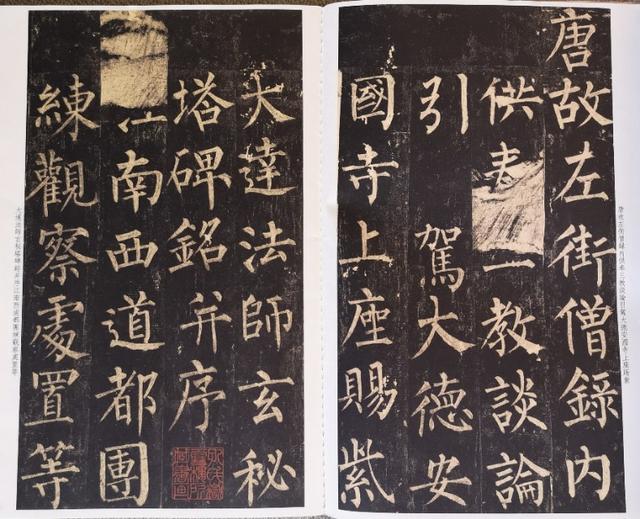 唐故左街僧錄內
供奉三教談論
引駕大德安
國寺上座賜紫
大達法師玄秘
塔碑銘并序
江南西道都團
練觀察處置等
唐故左街僧錄內供奉三教談論引駕大德安國寺上座賜紫
大達法師玄秘塔碑銘并序江南西道都團練觀察處置等